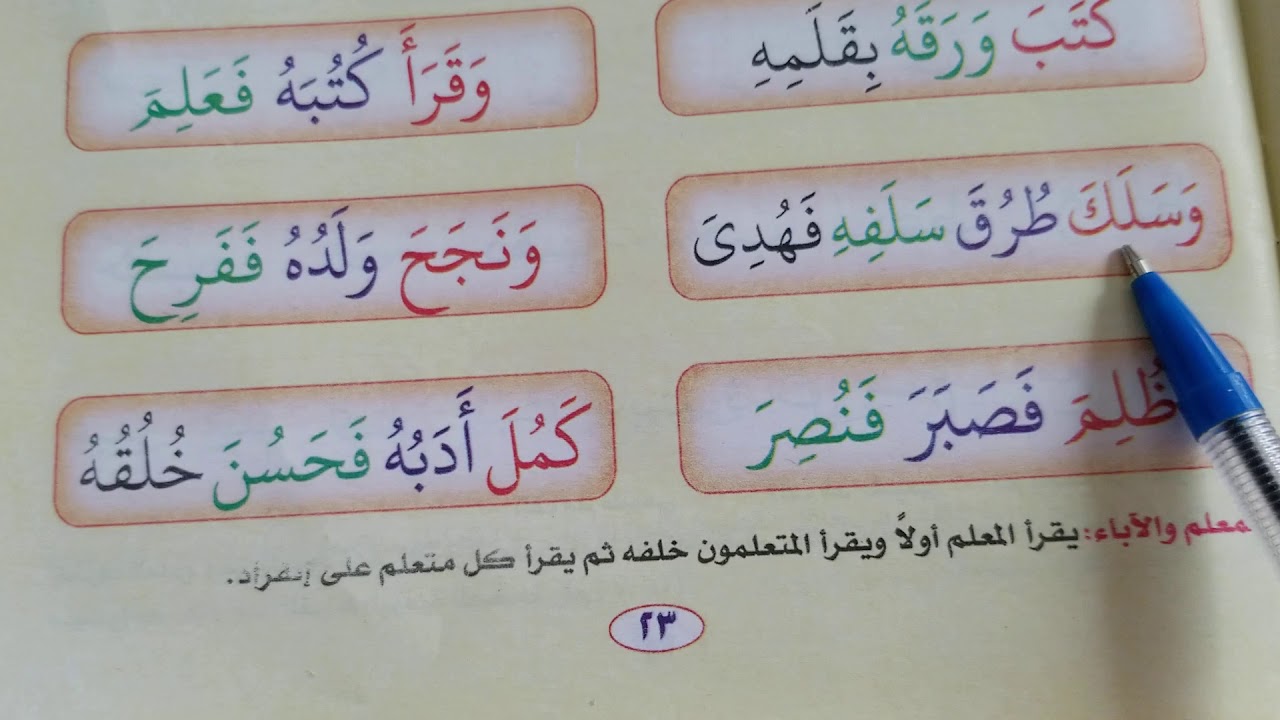 كَتَبَ وَرَقَهُ بِقَلَمِهِ
وَقَرَأَ كُتُبَهُ فَعَلِمَ
وَسَلَكَ طُرُقَ سَلَفِهِ فَهُدِىَ
وَنَجَحَ وَلَدُهُ فَفَرِحَ
ظُلِمَ فَصَبَرَ فَنُصِرَ
كَمُلَ أَدَبُهُ فَحَسُنَ خُلُقُهُ
لمعلم والآباء: يقرأ المعلم أولاً ويقرأ المتعلمون خلفه ثم يقرأ كل متعلم على إنفراد.
٢٣